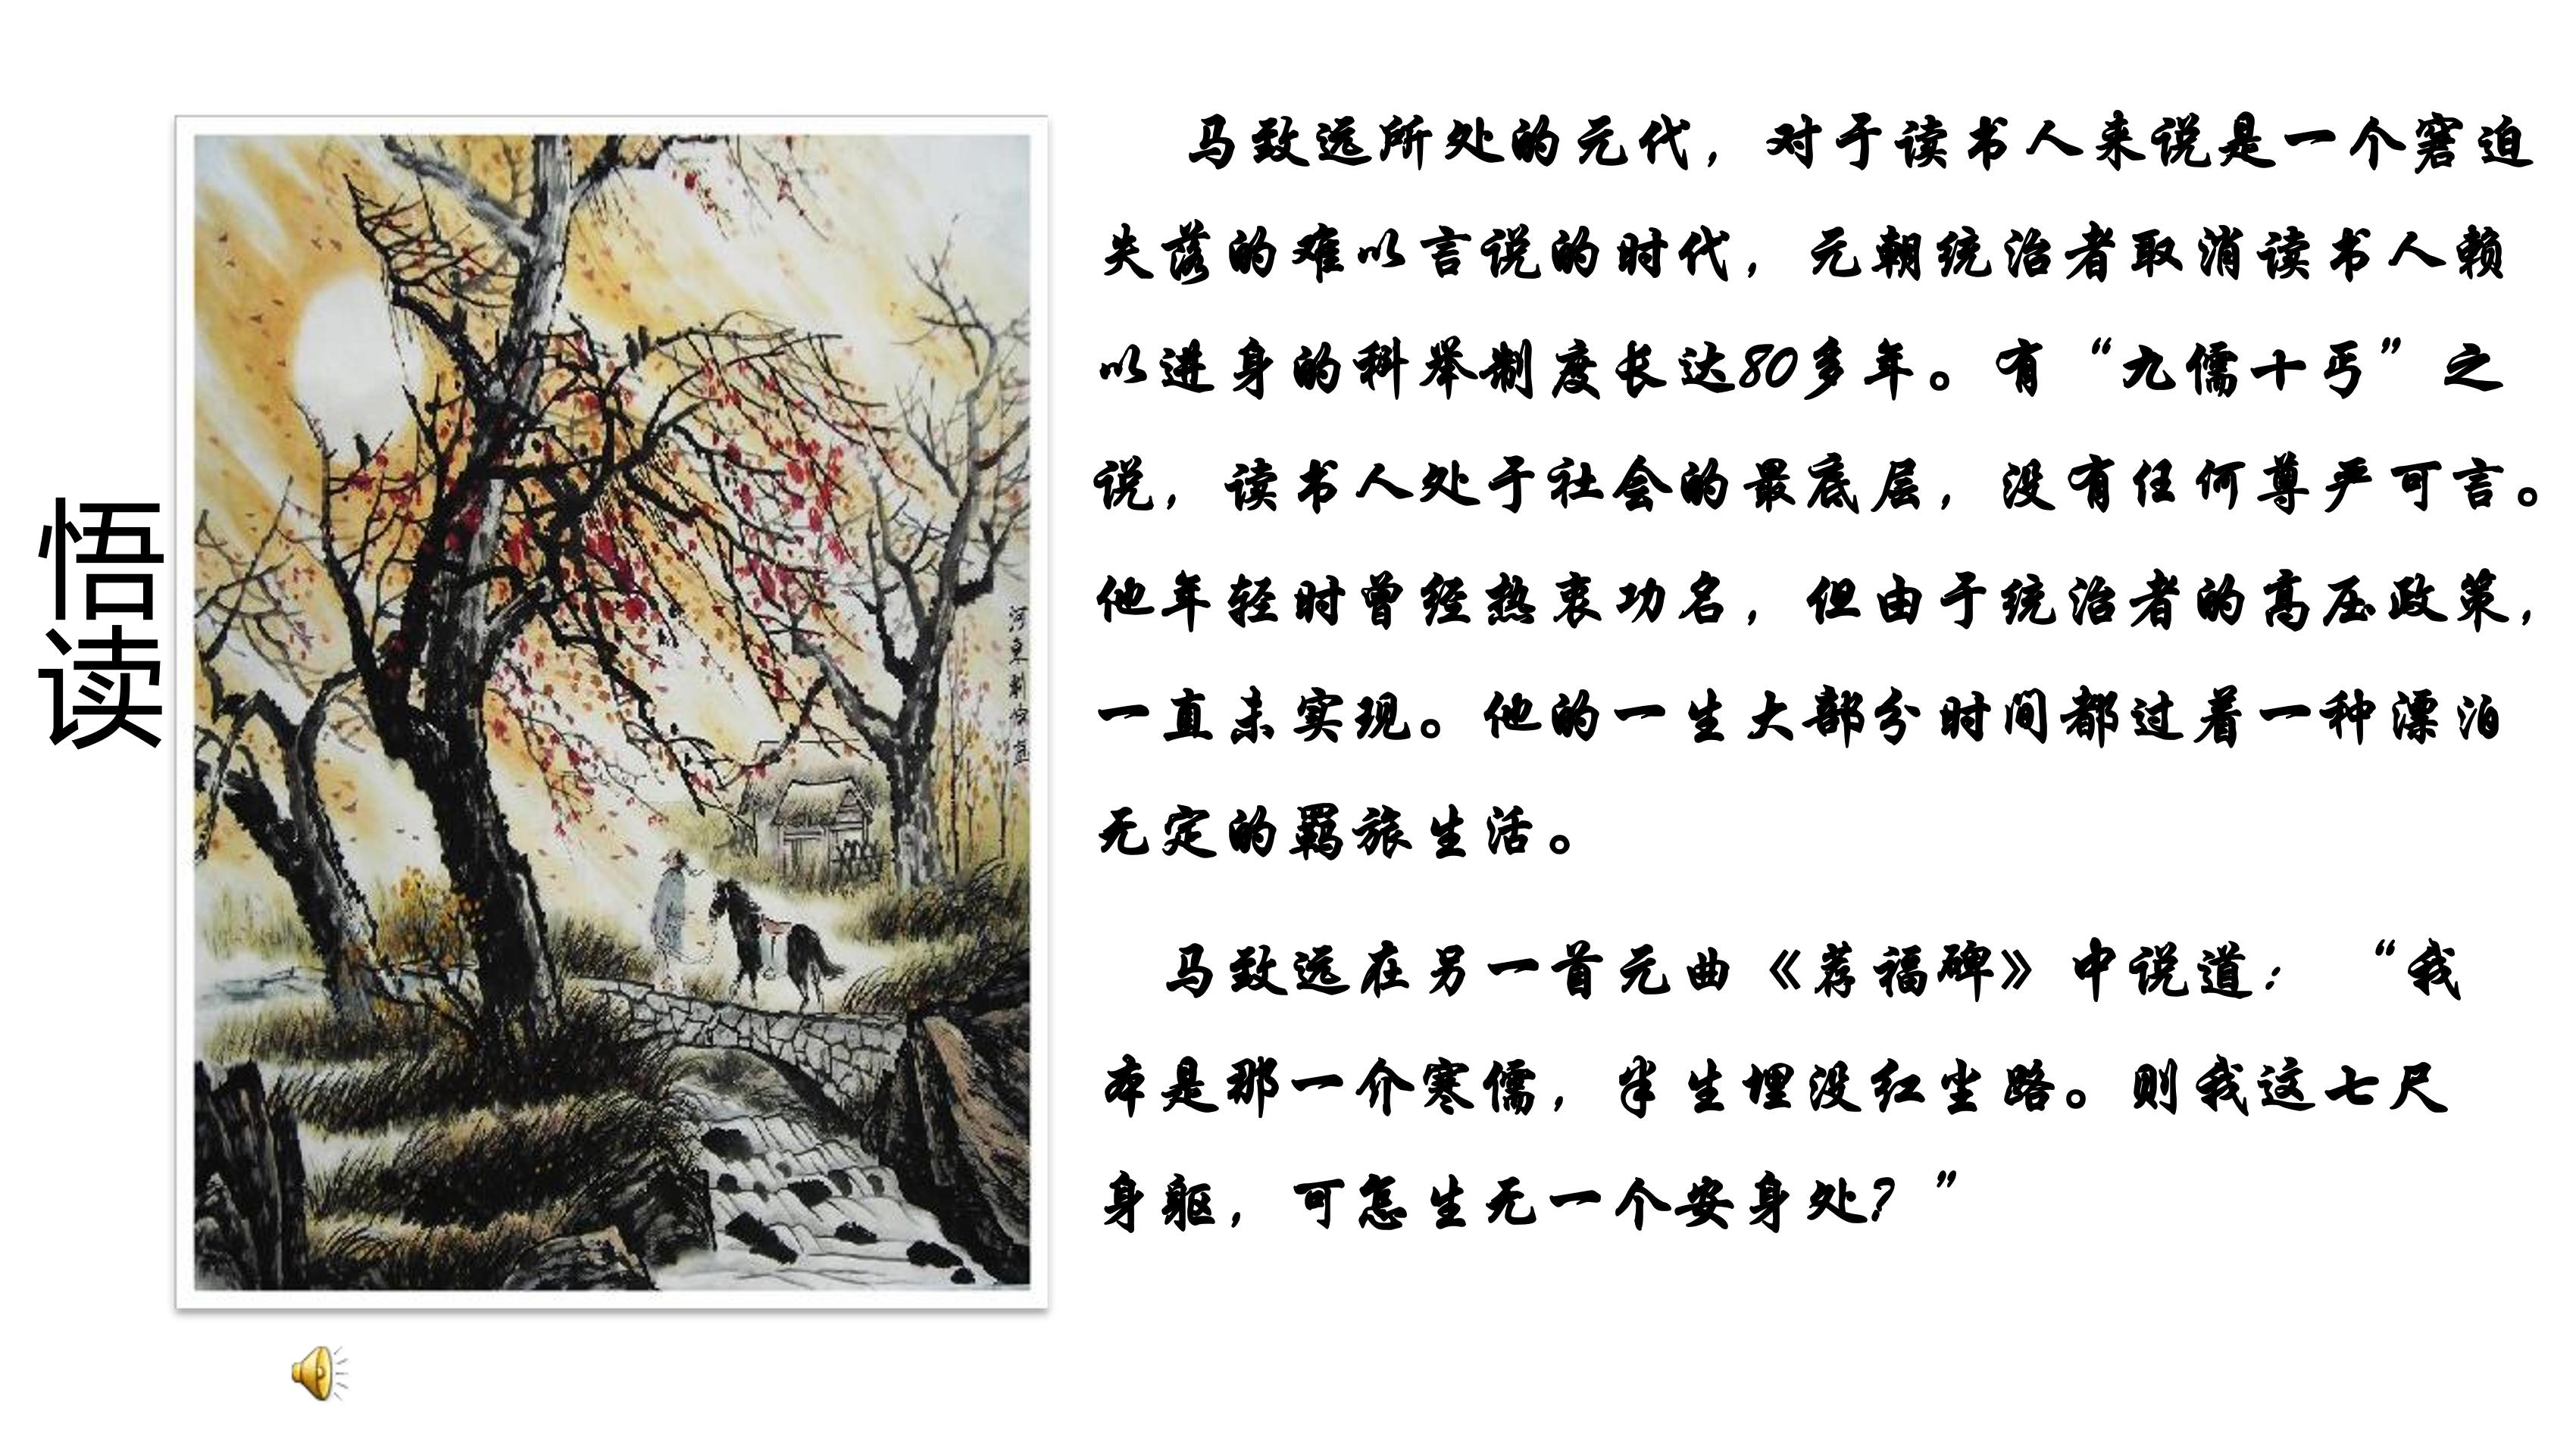 悟读
马致远所处的元代，对于读书人来说是一个窘迫
失落的难以言说的时代，元朝统治者取消读书人赖
以进身的科举制度长达80多年。有“九儒十丐”之
说，读书人处于社会的最底层，没有任何尊严可言。
他年轻时曾经热衷功名，但由于统治者的高压政策，
一直未实现。他的一生大部分时间都过着一种漂泊
无定的羁旅生活。
马致远在另一首元曲《荐福碑》中说道：“我
本是那一介寒儒，半生埋没红尘路。则我这七尺
身躯，可怎生无一个安身处？”